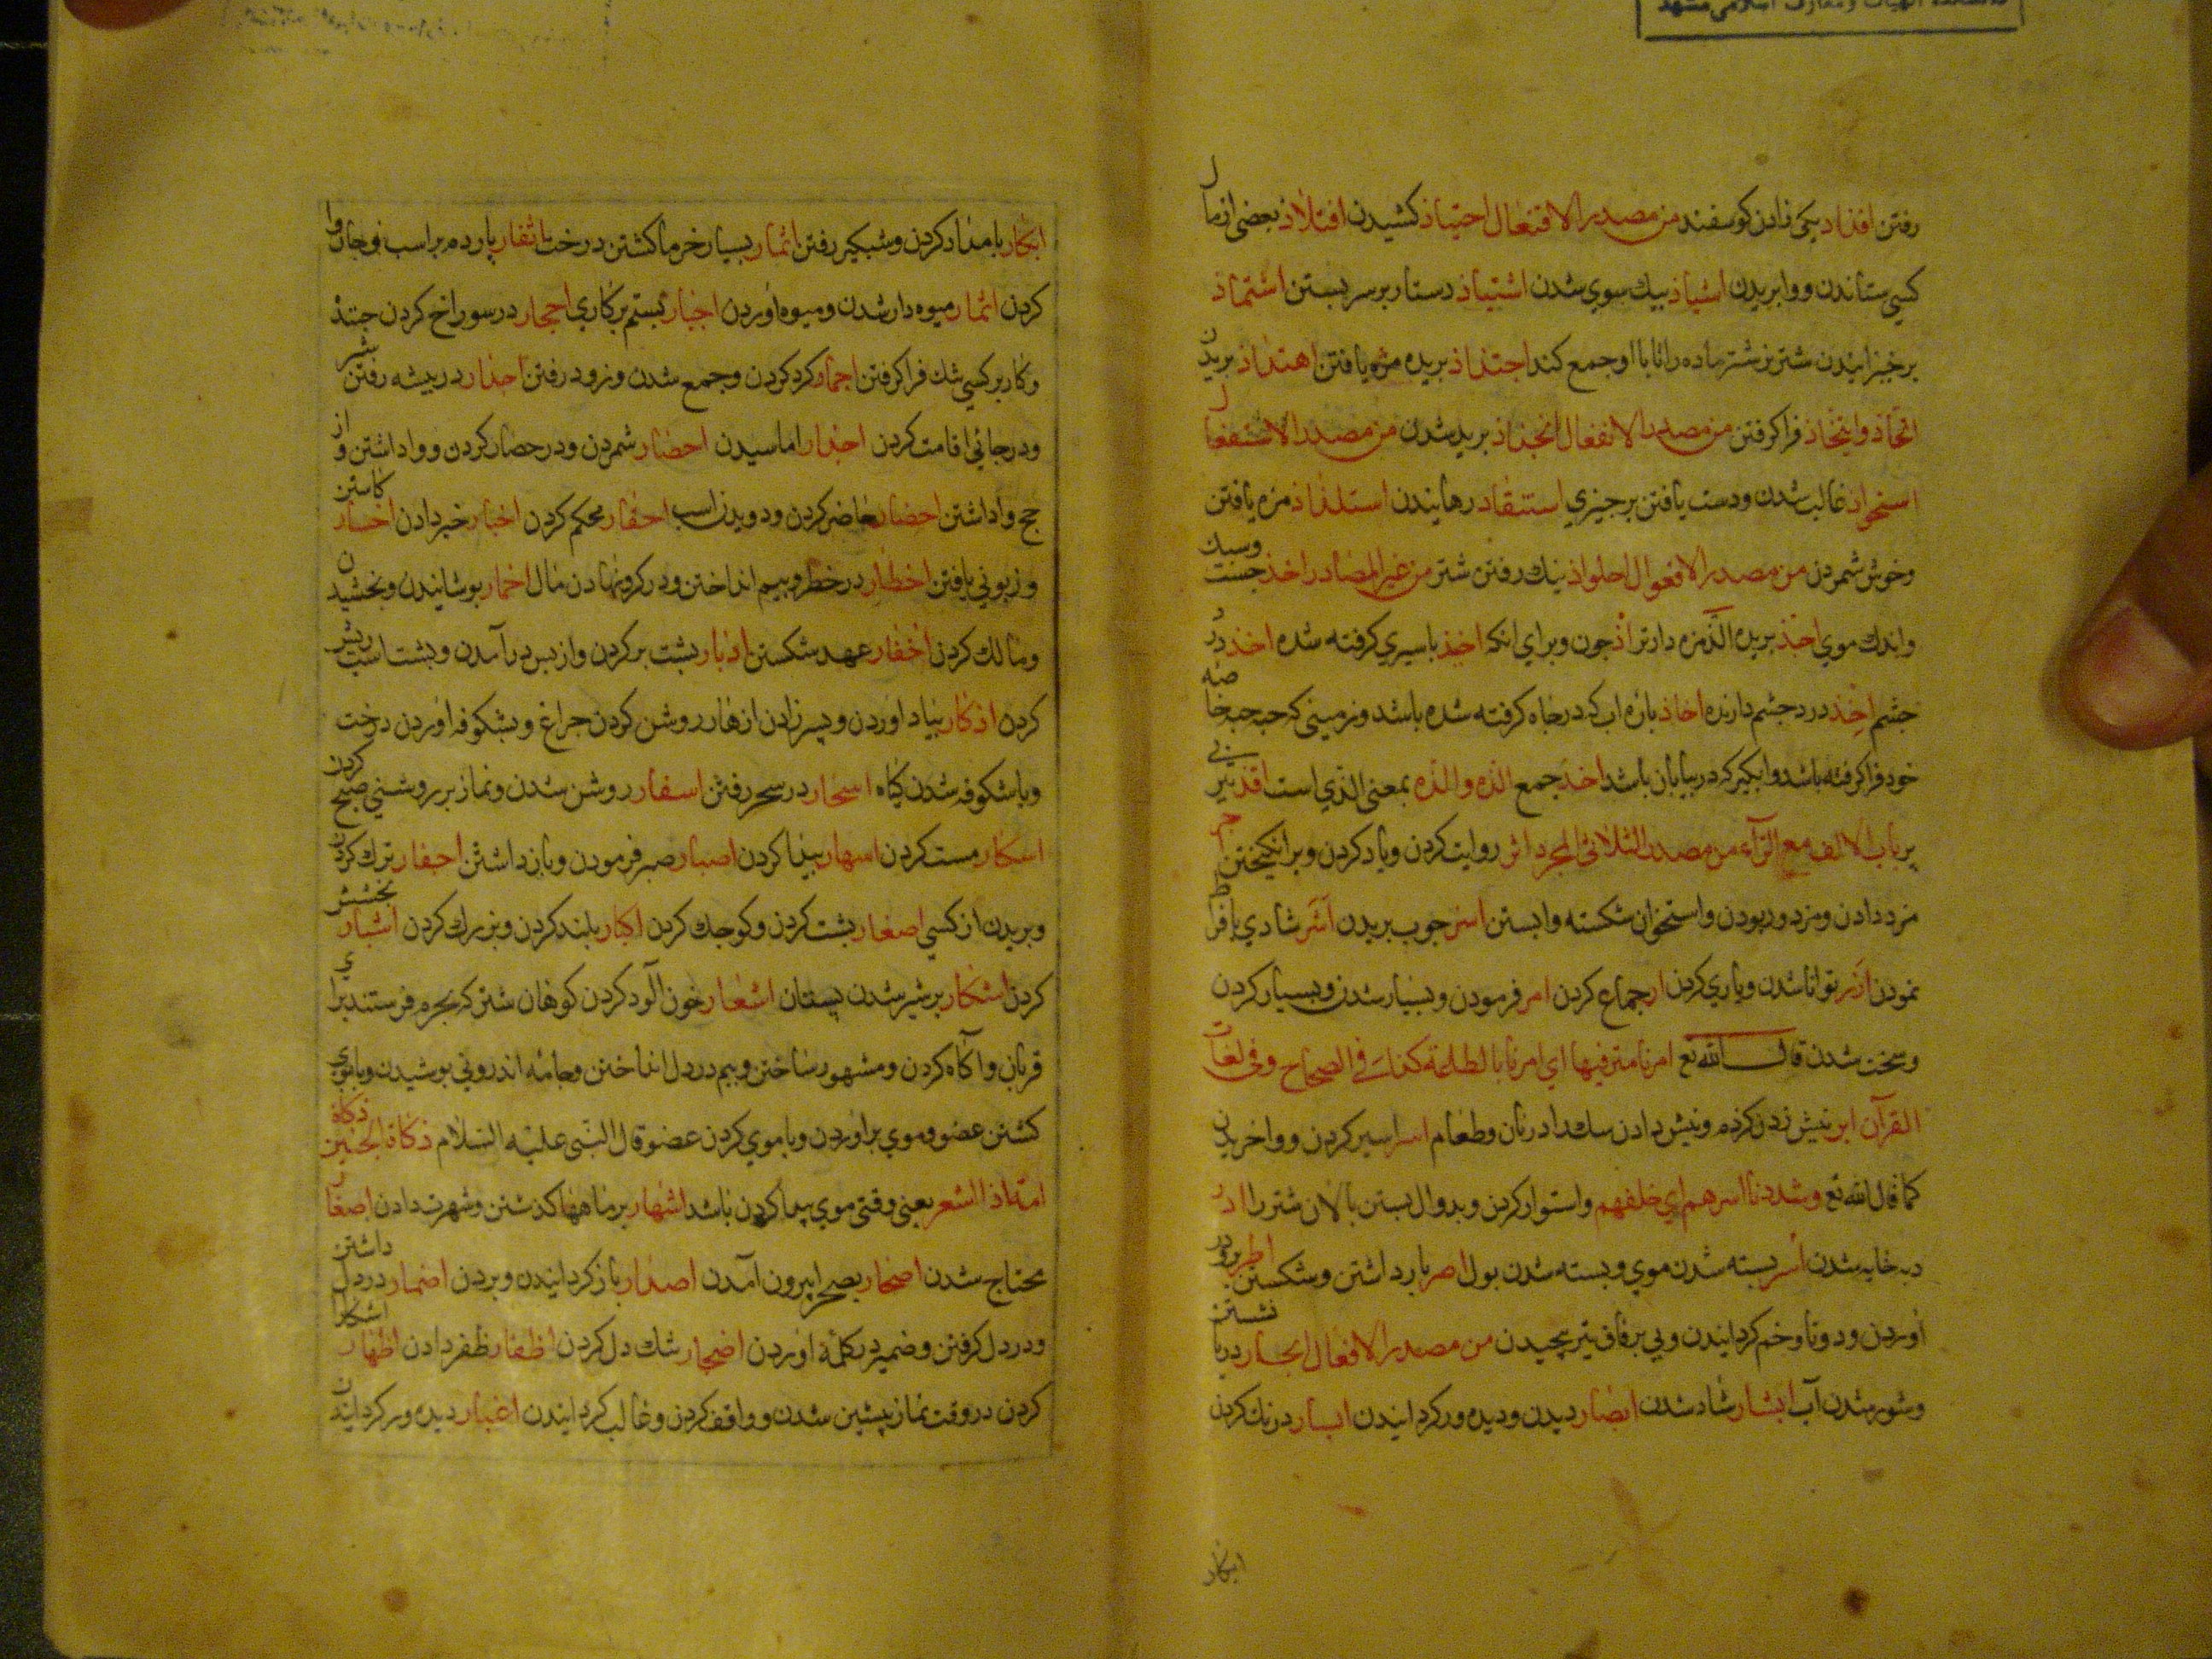 دانشکده الهیات و معارف اسلامی مشهد
رفتن افذاذ یکی زادن کوسفند من مصدر الافتعال احتیاذ کشیدن افتلاذ بعضی از مال
کسی ستاندن و وابریدن اشیاذ بیک سوی شدن اشتیاذ دستار بر سر بستن اشتماذ
برخیزانیدن شتر نر شتر ماده را تا با او جمع کند اجتذاذ بریده مزه یافتن اهتذاذ بریدن
اتخاذ وایتخاذ فراکرفتن من مصدر الانفعال انجذاذ بریده شدن من مصدر الاستفعال
استحواذ غالب شدن و دست یافتن بر چیزی استنقاذ رهانیدن استلذاذ مزه یافتن
وخوش شمردن من مصدر الافعوال اجلواذ نیک رفتن شتر من غیر المصادر احذ جست وسبک
واندک موی احذ بریده الذ مزه دارتر اذ چون و برای انکه اخیذ باسیری کرفته شده اخذ درد
چشم اخذ درد چشم دارنده اخاذ باره اب که در جاه کرفته شده باشد و زمینی که جهة خاصه
خود فراکرفته باشد و ابکیر که در بیابان باشد اخذ جمع الذه والذه بمعنی الذی است اقذ تیر بی
پر باب الالف مع الراء من مصدر الثلاثی المجرد اثر روایت کردن و یاد کردن و برانکیختن اجر
مزد دادن و مزدور بودن و استخوان شکسته وابستن اشر چوب بریدن اشر شادی بافراط
نمودن ازر توانا شدن و یاری کردن ار جماع کردن امر فرمودن و بسیار شدن و بسیار کردن
وسخت شدن قال الله تع امرنا مترفیها ای امرنا بالطاعة کذا فی الصحاح و فی لغات
القرآن ابر نیش زدن کژدم و نیش دادن سک را در نان و طعام اسر اسیر کردن و واخریدن
کما قال الله تع وشددنا اسرهم ای خلقهم واستوار کردن و بدوال بستن بالان شتر را ادر
دبه خایه شدن اسر بسته شدن موی و بسته شدن بول اصر بازداشتن و شکستن اطر
اوردن و دوتا و خم کردانیدن و پی بر فاق تیر پیچیدن من مصدر الافعال ابحار در دریا نشستن
وشور شدن آب ابشار شاد شدن ابصار دیدن و دیده ور کردانیدن ابسار درنک کردن
ابکار
ابکار بامداد کردن و شبکیر رفتن اتمار بسیار خرما کشتن درخت اثفار پاردم بر اسب
کردن اثمار میوه دار شدن و میوه اوردن اجبار بستم بر کاری احجار در سوراخ کردن
وکار بر کسی تنک فراکرفتن اجمار کرد کردن و جمع شدن و زود رفتن اخدار در بیشه رفتن شیر
ودر جائی اقامت کردن احدار اماسیدن احصار شمردن و در حصار کردن و واداشتن و از
حج واداشتن احضار حاضر کردن و دویدن اسب احقار محکم کردن اخبار خبر دادن اخسار کاستن
وزبونی یافتن اخطار در خطر و بیم انداختن و در کرو نهادن مال اخمار پوشانیدن و بخشیدن
ومالک کردن اخفار عهد شکستن ادبار پشت بر کردن و از پس درآمدن و پشت اسب ریش
کردن اذکار بیاد اوردن و پسر زادن ازهار روشن کردن چراغ و بشکوفه اوردن درخت
وباشکوفه شدن کیاه اسحار در سحر رفتن اسفار روشن شدن و نماز بر روشنی صبح کردن
اسکار مست کردن اسهار بیدار کردن اصبار صبر فرمودن و بازداشتن احفار ترک کردن
وبریدن از کسی اصغار پشت کردن و کوچک کردن اکبار بلند کردن و بزرک کردن اشبار بخشش
کردن اشکار پر شیر شدن پستان اشعار خون آلود کردن کوهان شتر که بحرم فرستند برای
قربان و آکاه کردن و مشهور ساختن و بیم در دل انداختن و جامه اندرونی پوشیدن و باموی
کشتن عضو و موی براوردن و باموی کردن عضو قال النبی علیه السلام ذکاة الجنین ذکاة
امه اذا اشعر یعنی وقتی موی پیدا کردن باشد اشهار بر ماهها کذشتن و شهرت دادن اصغار
محتاج شدن اصحار بصحرا بیرون آمدن اصدار بازکردانیدن و بردن اضمار در دل داشتن
ودر دل کرفتن و ضمیر در کلمه اوردن اضجار تنک دل کردن اظفار ظفر دادن اظهار اشکارا
کردن در وقت نماز پیشین شدن و واقف کردن و غالب کردانیدن اغبار دیده ور کردانیدن